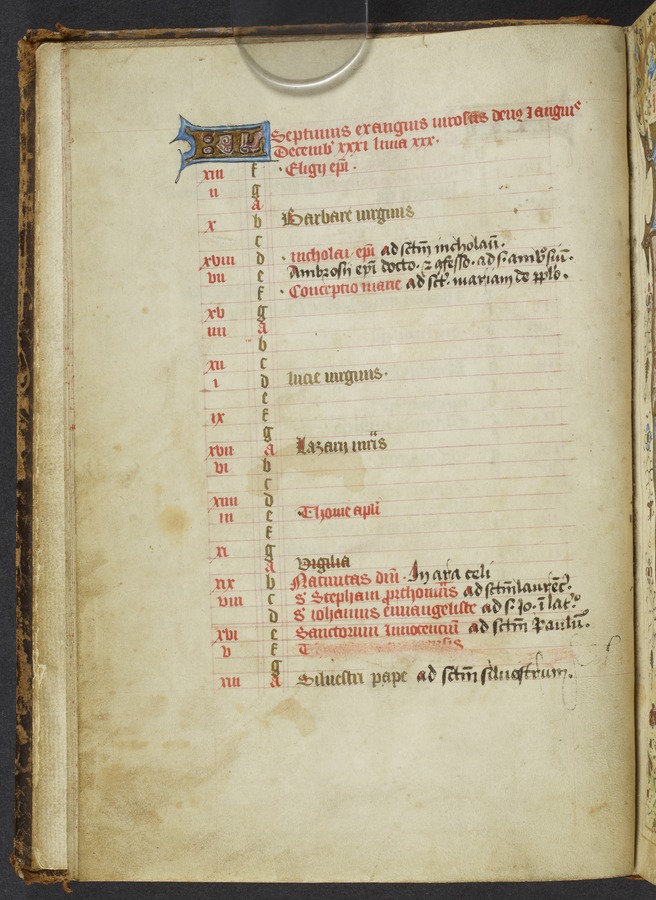 KL Septimus exanguis virosus denus et anguis
Decemb xxxi luna xxx.
xiii f Eligii epi.
ii g
A
x b Barbare virginis
c
xviii d nicholai epi ad sctm nicholau.
vii e Ambrosii epi docto. z 9fesso. ad s. ambrosiu.
f Conceptio marie ad sct. mariam de pplo.
xv g
iiii A
b
xii c
i d lucie virginis.
e
ix f
g
xvii A Lazari mris
vi b
c
xiiii d
iii e Thome apli
f
xi g
A Vigilia
xix b Nativitas dni. In ara celi
viii c s Stephani prthomris ad sctm laurec.
d s iohannis evuangeliste ad s. Jo. i lat.
xvi e Sanctorum Innocenciu ad sctm Paulu.
v f T
g
xiii A Silvestri pape ad sctm silvestrum.